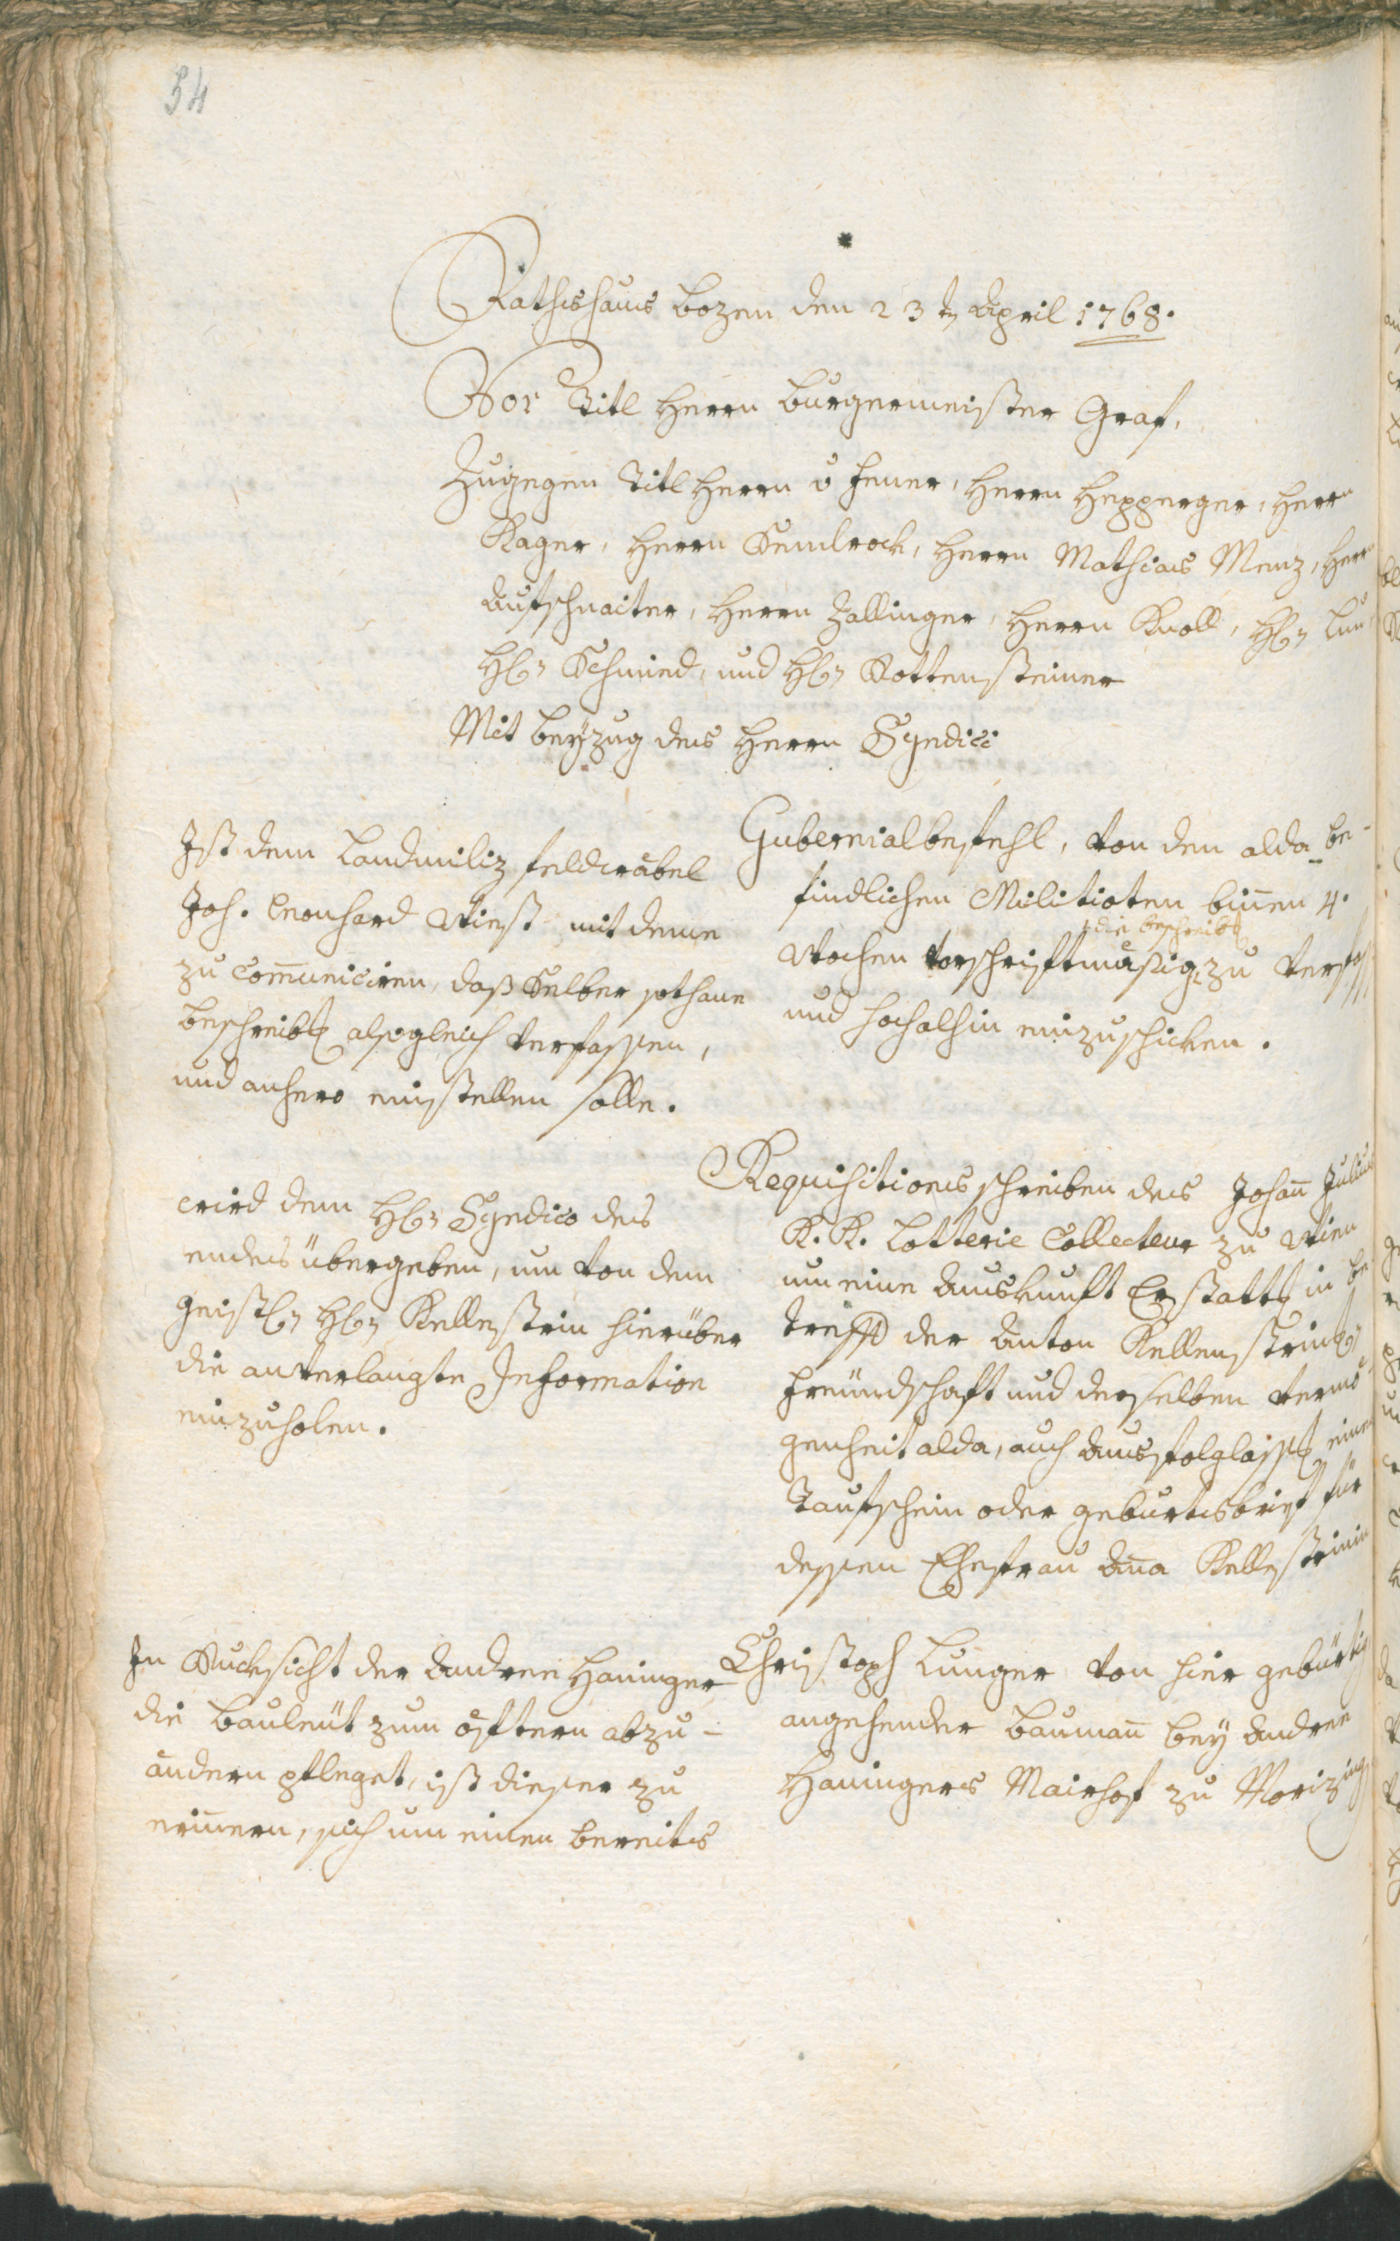 54
Rathshaus Bozen den 23t April 1768.
Vor Titl Herrn Burgermeister Graf,
Zugegen Titl Herrn v Feuer, Herrn Hepperger, Herrn
Rager, Herrn Kemlrock, Herrn Mathias Menz, Herrn
Aufschnaiter, Herrn Zallinger, Herrn Knoll, Hl:
Hl: Schmied, und Hl: Rottensteiner
Mit beyzug des Herrn Syndici
Gubernialbefehl, von den alda be-
findlichen Militioten binnen 4.
die beschreib:
Wochen vorschriftmäsig zu verfass
und hochalhin einzuschicken.
Ist dem Landmiliz feldwäbel
Joh. Leonhard Wiest mit deme
zu Communiciren, daß Selber sothane
beschreib: alsogleich verfassen,
und anhero einstellen solle.
Requisitions schreiben des Johann Julius
K. K. Lotterie Collecteur zu Wien
um eine Auskunft Erstatt: in be
treff der Anton Kellerstrin:
freündschaft und derselben vermö
genheit alda, auch Ausfolglass: einen
Taufschein oder geburtsbrief für
dessen Ehefrau Anna Kellerstrinin
wird dem Hl: Syndico des
endes übergeben, um von dem
geistl: Hl: Kellerstrin hierüber
die anverlangte Information
einzuholen.
Christoph Lunger von hier gebürtig
angehender Baumann bey Andree
Haningers Mairhof zu Morizing
In Rucksicht der Andree Haninger
die Bauleüt zum öftern abzu-
ändern pfleget, ist dieser zu
erinnern, sich um einen bereits